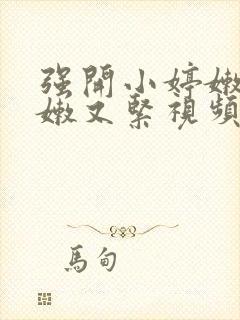 强開小婷嫩
嫩又緊視頻
馬甸